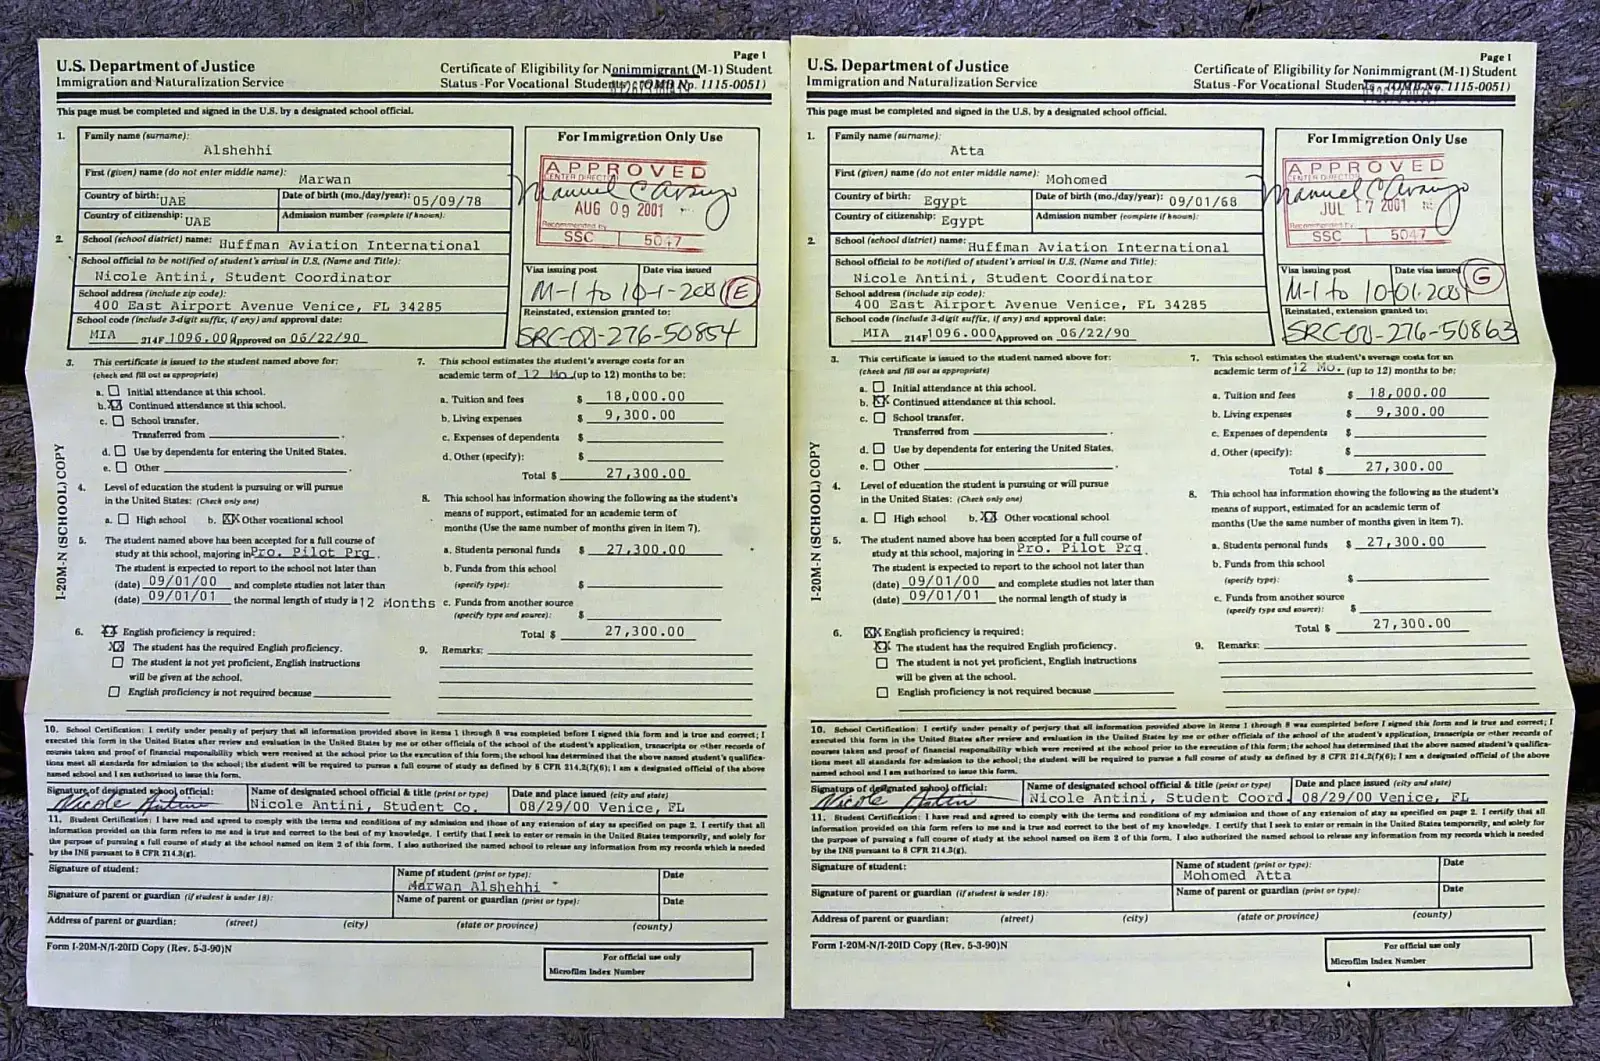 Page 1
U.S. Department of Justice
Immigration and Naturalization Service
Certificate of Eligibility for Nonimmigrant (M-1) Student
Status - For Vocational Students (OMB No. 1115-0051)
This page must be completed and signed in the U.S. by a designated school official.
1. Family name (surname):
Alshehhi
First (given) name (do not enter middle name): Marwan
Country of birth: UAE
Date of birth (mo./day/year): 05/09/78
Country of citizenship: UAE
Admission number (complete if known):
2. School (school district) name: Huffman Aviation International
School official to be notified of student's arrival in U.S. (Name and Title):
Nicole Antini, Student Coordinator
School address (include zip code):
400 East Airport Avenue Venice, FL 34285
School code (include 3-digit suffix, if any) and approval date:
MIA 214F 1096.000 Approved on 06/22/90
For Immigration Only Use
APPROVED
CENTER DIRECTOR
Manuel C Arango
AUG 09 2001
Recommended by
SSC 5047
Visa issuing post Date visa issued
M-1 to 10-1-2001 E
Reinstated, extension granted to:
SRC-01-276-50854
3. This certificate is issued to the student named above for:
(check and fill out as appropriate)
a. Initial attendance at this school.
b. XX Continued attendance at this school.
c. School transfer.
Transferred from
d. Use by dependents for entering the United States.
e. Other
4. Level of education the student is pursuing or will pursue
in the United States: (Check only one)
a. High school b. XX Other vocational school
5. The student named above has been accepted for a full course of
study at this school, majoring in Pro. Pilot Prg.
The student is expected to report to the school not later than
(date) 09/01/00 and complete studies not later than
(date) 09/01/01 the normal length of study is 12 Months
6. XX English proficiency is required:
XX The student has the required English proficiency.
The student is not yet proficient, English instructions
will be given at the school.
English proficiency is not required because
7. This school estimates the student's average costs for an
academic term of 12 Mo. (up to 12) months to be:
a. Tuition and fees $ 18,000.00
b. Living expenses $ 9,300.00
c. Expenses of dependents $
d. Other (specify): $
Total $ 27,300.00
8. This school has information showing the following as the student's
means of support, estimated for an academic term of
months (Use the same number of months given in item 7).
a. Students personal funds $ 27,300.00
b. Funds from this school
(specify type): $
c. Funds from another source
(specify type and source): $
Total $ 27,300.00
9. Remarks:
I-20M-N (SCHOOL) COPY
10. School Certification: I certify under penalty of perjury that all information provided above in items 1 through 8 was completed before I signed this form and is true and correct; I
executed this form in the United States after review and evaluation in the United States by me or other officials of the school of the student's application, transcripts or other records of
courses taken and proof of financial responsibility which were received at the school prior to the execution of this form; the school has determined that the above named student's qualifica-
tions meet all standards for admission to the school; the student will be required to pursue a full course of study as defined by 8 CFR 214.2(f)(6); I am a designated official of the above
named school and I am authorized to issue this form.
Signature of designated school official:
Nicole Antini
Name of designated school official & title (print or type)
Nicole Antini, Student Co.
Date and place issued (city and state)
08/29/00 Venice, FL
11. Student Certification: I have read and agreed to comply with the terms and conditions of my admission and those of any extension of stay as specified on page 2. I certify that all
information provided on this form refers to me and is true and correct to the best of my knowledge. I certify that I seek to enter or remain in the United States temporarily, and solely for
the purpose of pursuing a full course of study at the school named on item 2 of this form. I also authorized the named school to release any information from my records which is needed
by the INS pursuant to 8 CFR 214.3(g).
Signature of student:
Name of student (print or type):
Marwan Alshehhi
Date
Signature of parent or guardian (if student is under 18):
Name of parent or guardian (print or type):
Date
Address of parent or guardian: (street) (city) (state or province) (county)
Form I-20M-N/I-20ID Copy (Rev. 5-3-90)N
For official use only
Microfilm Index Number
Page 1
U.S. Department of Justice
Immigration and Naturalization Service
Certificate of Eligibility for Nonimmigrant (M-1) Student
Status - For Vocational Students (OMB No. 1115-0051)
This page must be completed and signed in the U.S. by a designated school official.
1. Family name (surname):
Atta
First (given) name (do not enter middle name): Mohomed
Country of birth: Egypt
Date of birth (mo./day/year): 09/01/68
Country of citizenship: Egypt
Admission number (complete if known):
2. School (school district) name: Huffman Aviation International
School official to be notified of student's arrival in U.S. (Name and Title):
Nicole Antini, Student Coordinator
School address (include zip code):
400 East Airport Avenue Venice, FL 34285
School code (include 3-digit suffix, if any) and approval date:
MIA 214F 1096.000 Approved on 06/22/90
For Immigration Only Use
APPROVED
CENTER DIRECTOR
Manuel C Arango
JUL 17 2001
Recommended by
SSC 5047
Visa issuing post Date visa issued
M-1 to 10-01-2001 G
Reinstated, extension granted to:
SRC-01-276-50863
3. This certificate is issued to the student named above for:
(check and fill out as appropriate)
a. Initial attendance at this school.
b. XX Continued attendance at this school.
c. School transfer.
Transferred from
d. Use by dependents for entering the United States.
e. Other
4. Level of education the student is pursuing or will pursue
in the United States: (Check only one)
a. High school b. XX Other vocational school
5. The student named above has been accepted for a full course of
study at this school, majoring in Pro. Pilot Prg.
The student is expected to report to the school not later than
(date) 09/01/00 and complete studies not later than
(date) 09/01/01 the normal length of study is
6. XX English proficiency is required:
XX The student has the required English proficiency.
The student is not yet proficient, English instructions
will be given at the school.
English proficiency is not required because
7. This school estimates the student's average costs for an
academic term of 12 Mo. (up to 12) months to be:
a. Tuition and fees $ 18,000.00
b. Living expenses $ 9,300.00
c. Expenses of dependents $
d. Other (specify): $
Total $ 27,300.00
8. This school has information showing the following as the student's
means of support, estimated for an academic term of
months (Use the same number of months given in item 7).
a. Students personal funds $ 27,300.00
b. Funds from this school
(specify type): $
c. Funds from another source
(specify type and source): $
Total $ 27,300.00
9. Remarks:
I-20M-N (SCHOOL) COPY
10. School Certification: I certify under penalty of perjury that all information provided above in items 1 through 8 was completed before I signed this form and is true and correct; I
executed this form in the United States after review and evaluation in the United States by me or other officials of the school of the student's application, transcripts or other records of
courses taken and proof of financial responsibility which were received at the school prior to the execution of this form; the school has determined that the above named student's qualifica-
tions meet all standards for admission to the school; the student will be required to pursue a full course of study as defined by 8 CFR 214.2(f)(6); I am a designated official of the above
named school and I am authorized to issue this form.
Signature of designated school official:
Nicole Antini
Name of designated school official & title (print or type)
Nicole Antini, Student Coord.
Date and place issued (city and state)
08/29/00 Venice, FL
11. Student Certification: I have read and agreed to comply with the terms and conditions of my admission and those of any extension of stay as specified on page 2. I certify that all
information provided on this form refers to me and is true and correct to the best of my knowledge. I certify that I seek to enter or remain in the United States temporarily, and solely for
the purpose of pursuing a full course of study at the school named on item 2 of this form. I also authorized the named school to release any information from my records which is needed
by the INS pursuant to 8 CFR 214.3(g).
Signature of student:
Name of student (print or type):
Mohomed Atta
Date
Signature of parent or guardian (if student is under 18):
Name of parent or guardian (print or type):
Date
Address of parent or guardian: (street) (city) (state or province) (county)
Form I-20M-N/I-20ID Copy (Rev. 5-3-90)N
For official use only
Microfilm Index Number